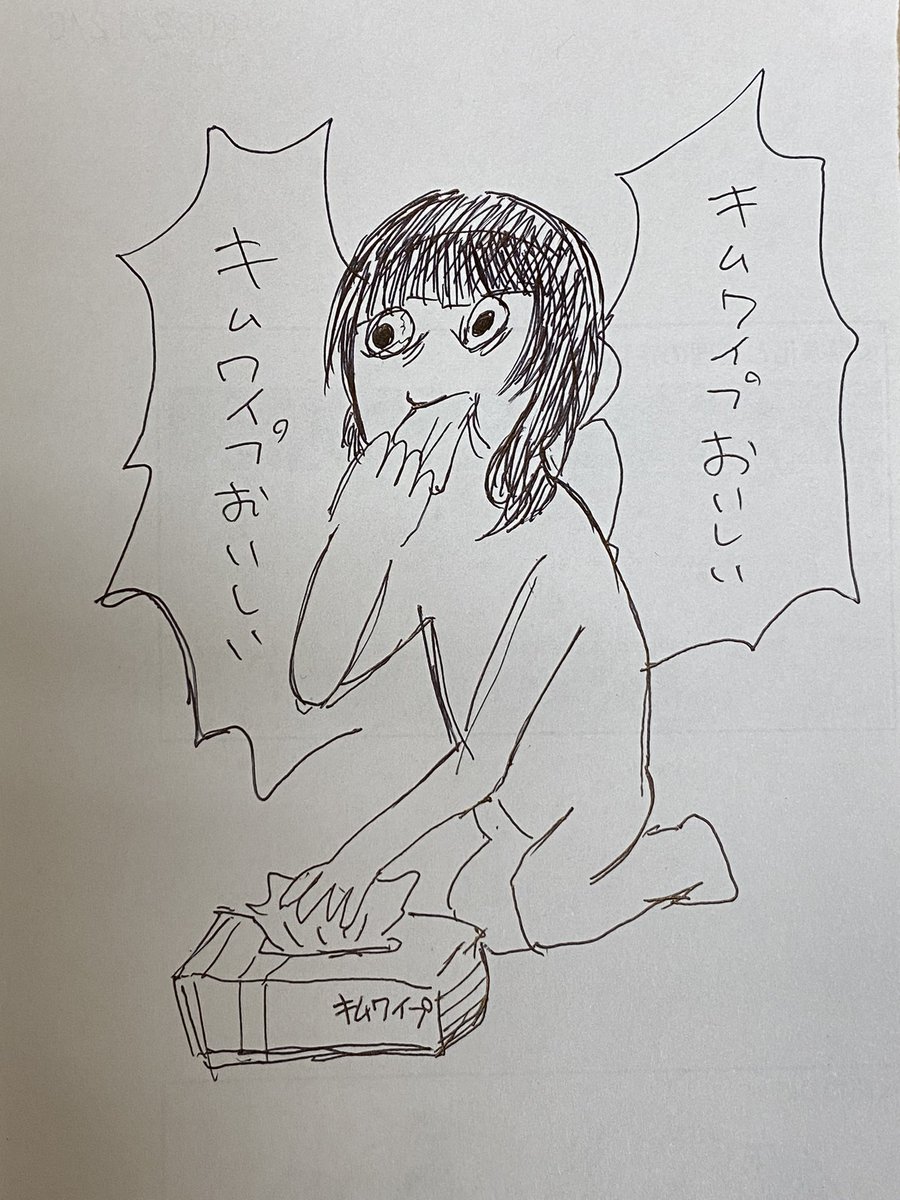 キムワイプおいしい
キムワイプおいしい
キムワイプ